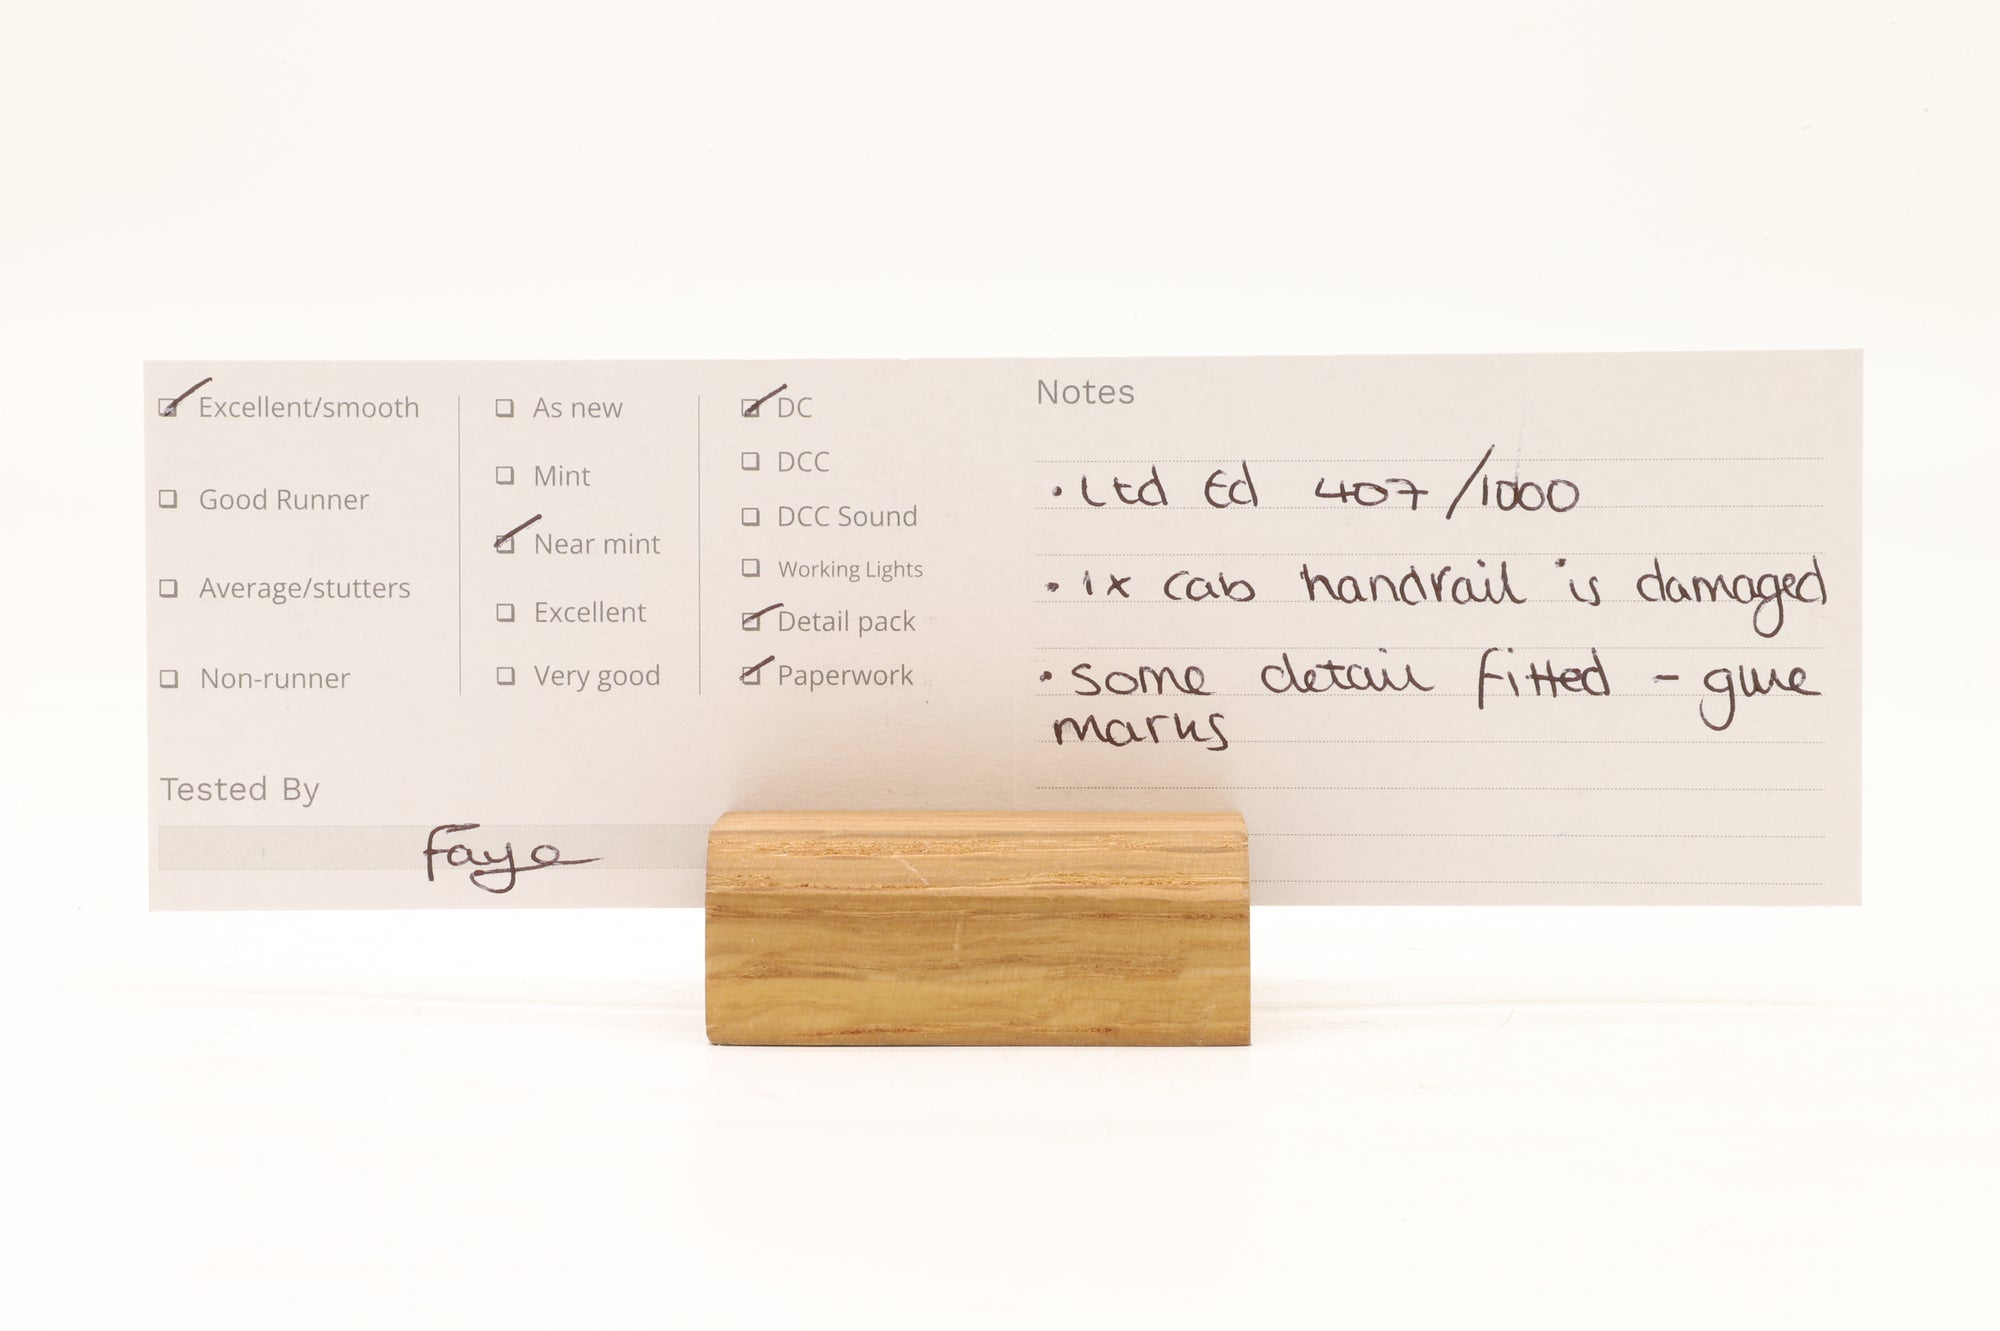 Excellent/smooth
Good Runner
Average/stutters
Non-runner
As new
Mint
Near mint
Excellent
Very good
DC
DCC
DCC Sound
Working Lights
Detail pack
Paperwork
Tested By
Faye
Notes
• Ltd Ed 407/1000
• 1x cab handrail is damaged
• some detail fitted - glue
marks